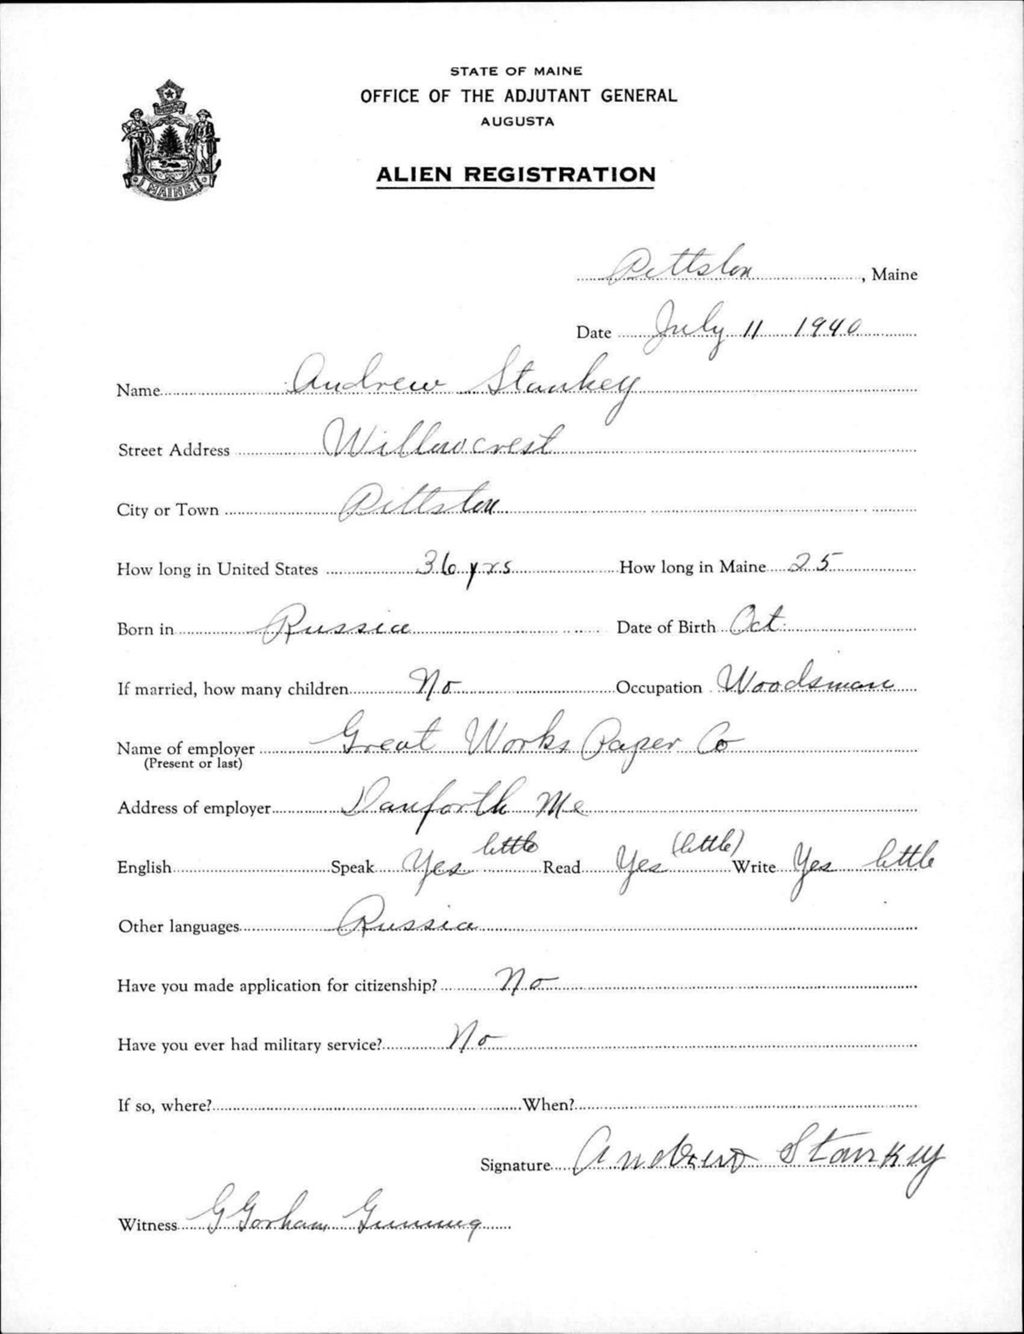 STATE OF MAINE
OFFICE OF THE ADJUTANT GENERAL
AUGUSTA
ALIEN REGISTRATION
MAINE
Pittston, Maine
Date July 11 1940
Name Andrew Stankey
Street Address Willowcrest
City or Town Pittston
How long in United States 36 yrs How long in Maine 25
Born in Russia Date of Birth Oct.
If married, how many children No Occupation Woodsman
Name of employer Great Works Paper Co
(Present or last)
Address of employer Danforth Me
English Speak Yes little Read Yes (little) Write Yes little
Other languages Russia
Have you made application for citizenship? No
Have you ever had military service? No
If so, where? When?
Signature Andrew Stankey
Witness G Gorham